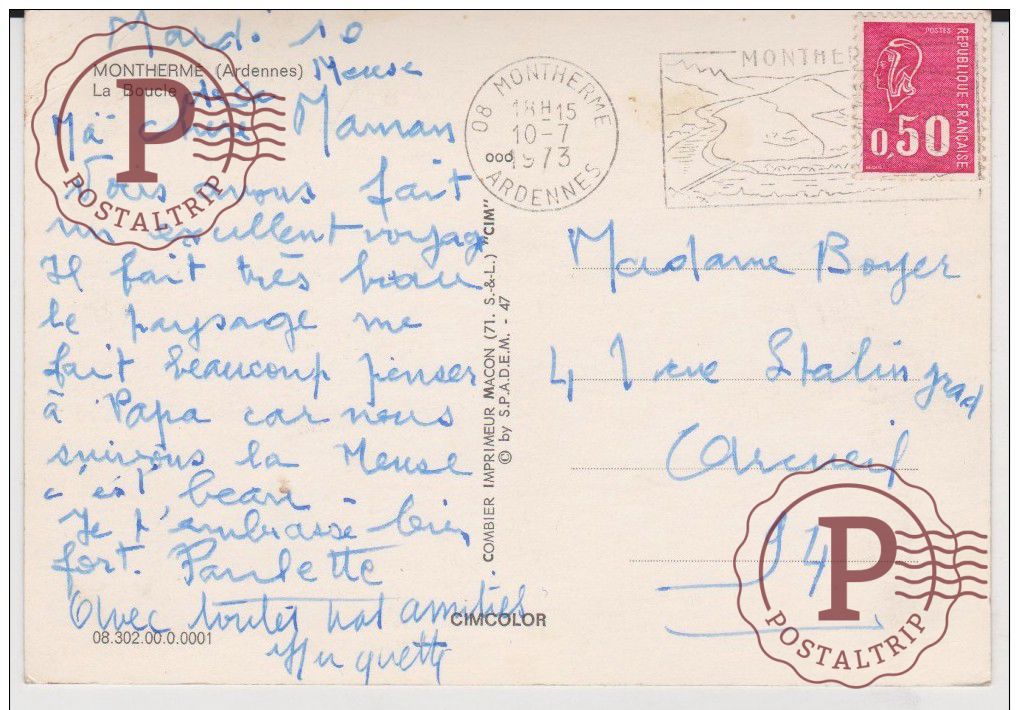 Mardi 10
MONTHERMÉ (Ardennes)
La Boucle
Meuse
Ma chère Maman
Nous avons fait
un excellent voyage
Il fait très beau
le paysage me
fait beaucoup penser
à Papa car nous
suivons la Meuse
c'est beau
Je t'embrasse bien
fort. Paulette
Avec toutes nos amitiés
Huguette
08.302.00.0.0001
CIMCOLOR
COMBIER IMPRIMEUR MACON (71. S.-&-L.) "CIM"
© by S.P.A.D.E.M. - 47
08 MONTHERME
18H15
10-7
1973
ARDENNES
MONTHER
POSTES
REPUBLIQUE FRANÇAISE
0,50
Madame Boyer
41 rue Stalingrad
Arcueil
94
P
POSTALTRIP
P
POSTALTRIP